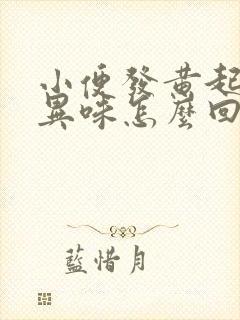 小便發黃起
異味怎麼回
藍惜月